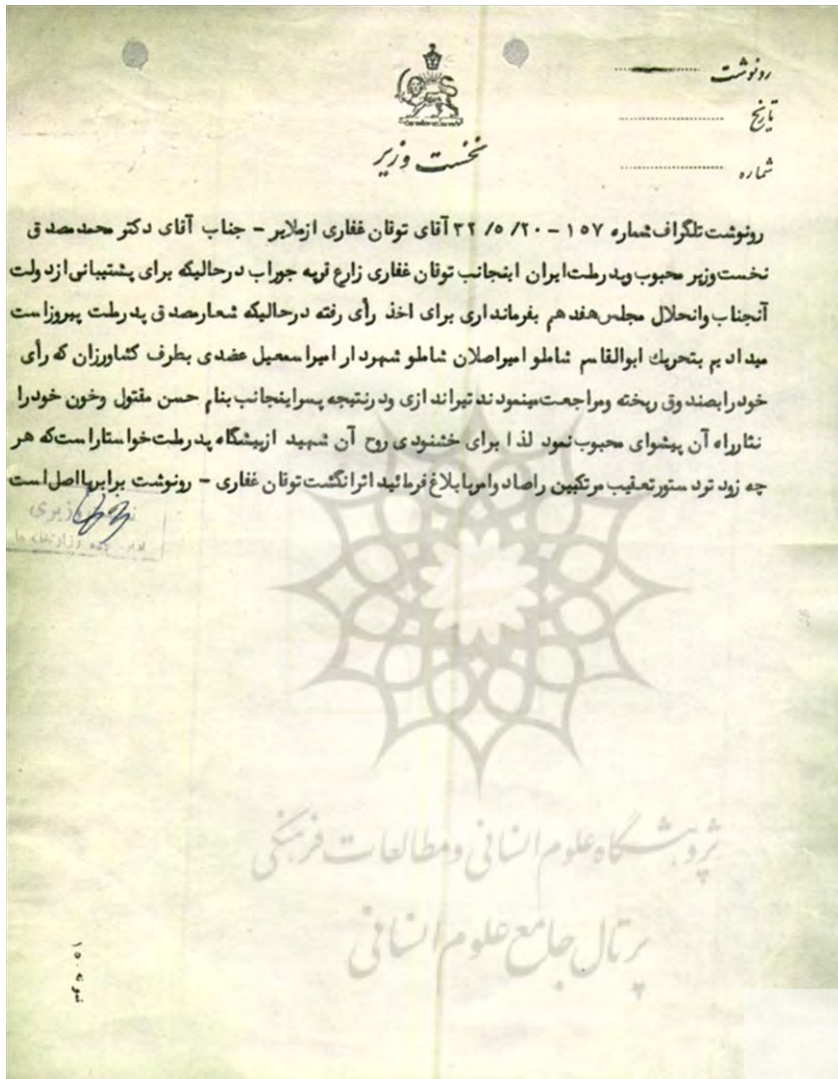 رونوشت
تاریخ
شماره
نخست وزیر
رونوشت تلگراف شماره ۱۵۷ - ۳۲/۵/۲۰ آقای توقان غفاری ازملایر - جناب آقای دکتر محمد مصدق
نخست وزیر محبوب وپدرملت ایران اینجانب توقان غفاری زارع قریه جوراب درحالیکه برای پشتیبانی ازدولت
آنجناب وانحلال مجلس هفدهم بفرمانداری برای اخذ رأی رفته درحالیکه شعارمصدق پدرملت پیروزاست
میدادیم بتحریك ابوالقاسم شاملو امیراصلان شاملو شهردار امیراسمعیل عضدی بطرف کشاورزان که رأی
خودرابصندوق ریخته ومراجعت مینمودند تیراندازی ودرنتیجه پسراینجانب بنام حسن مقتول وخون خودرا
نثارراه آن پیشوای محبوب نمود لذا برای خشنودی روح آن شهید ازپیشگاه پدرملت خواستاراست که هر
چه زودتردستورتعقیب مرتکبین راصادروامربابلاغ فرمائید اثرانگشت توقان غفاری - رونوشت برابربااصل است
نخست وزیری
پژوهشگاه علوم انسانی و مطالعات فرهنگی
پرتال جامع علوم انسانی
نمونه ۱۵۰